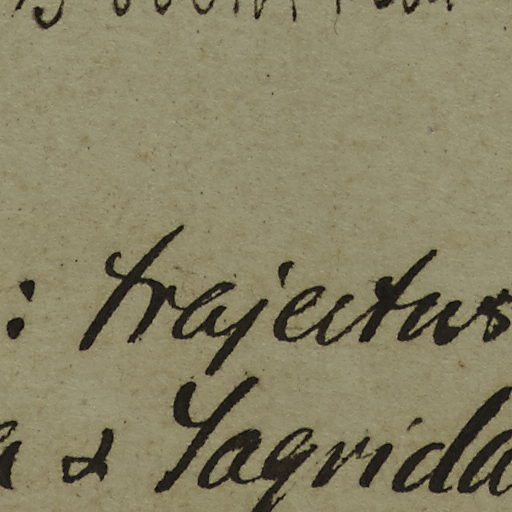 : trajectus
a & Yagrida